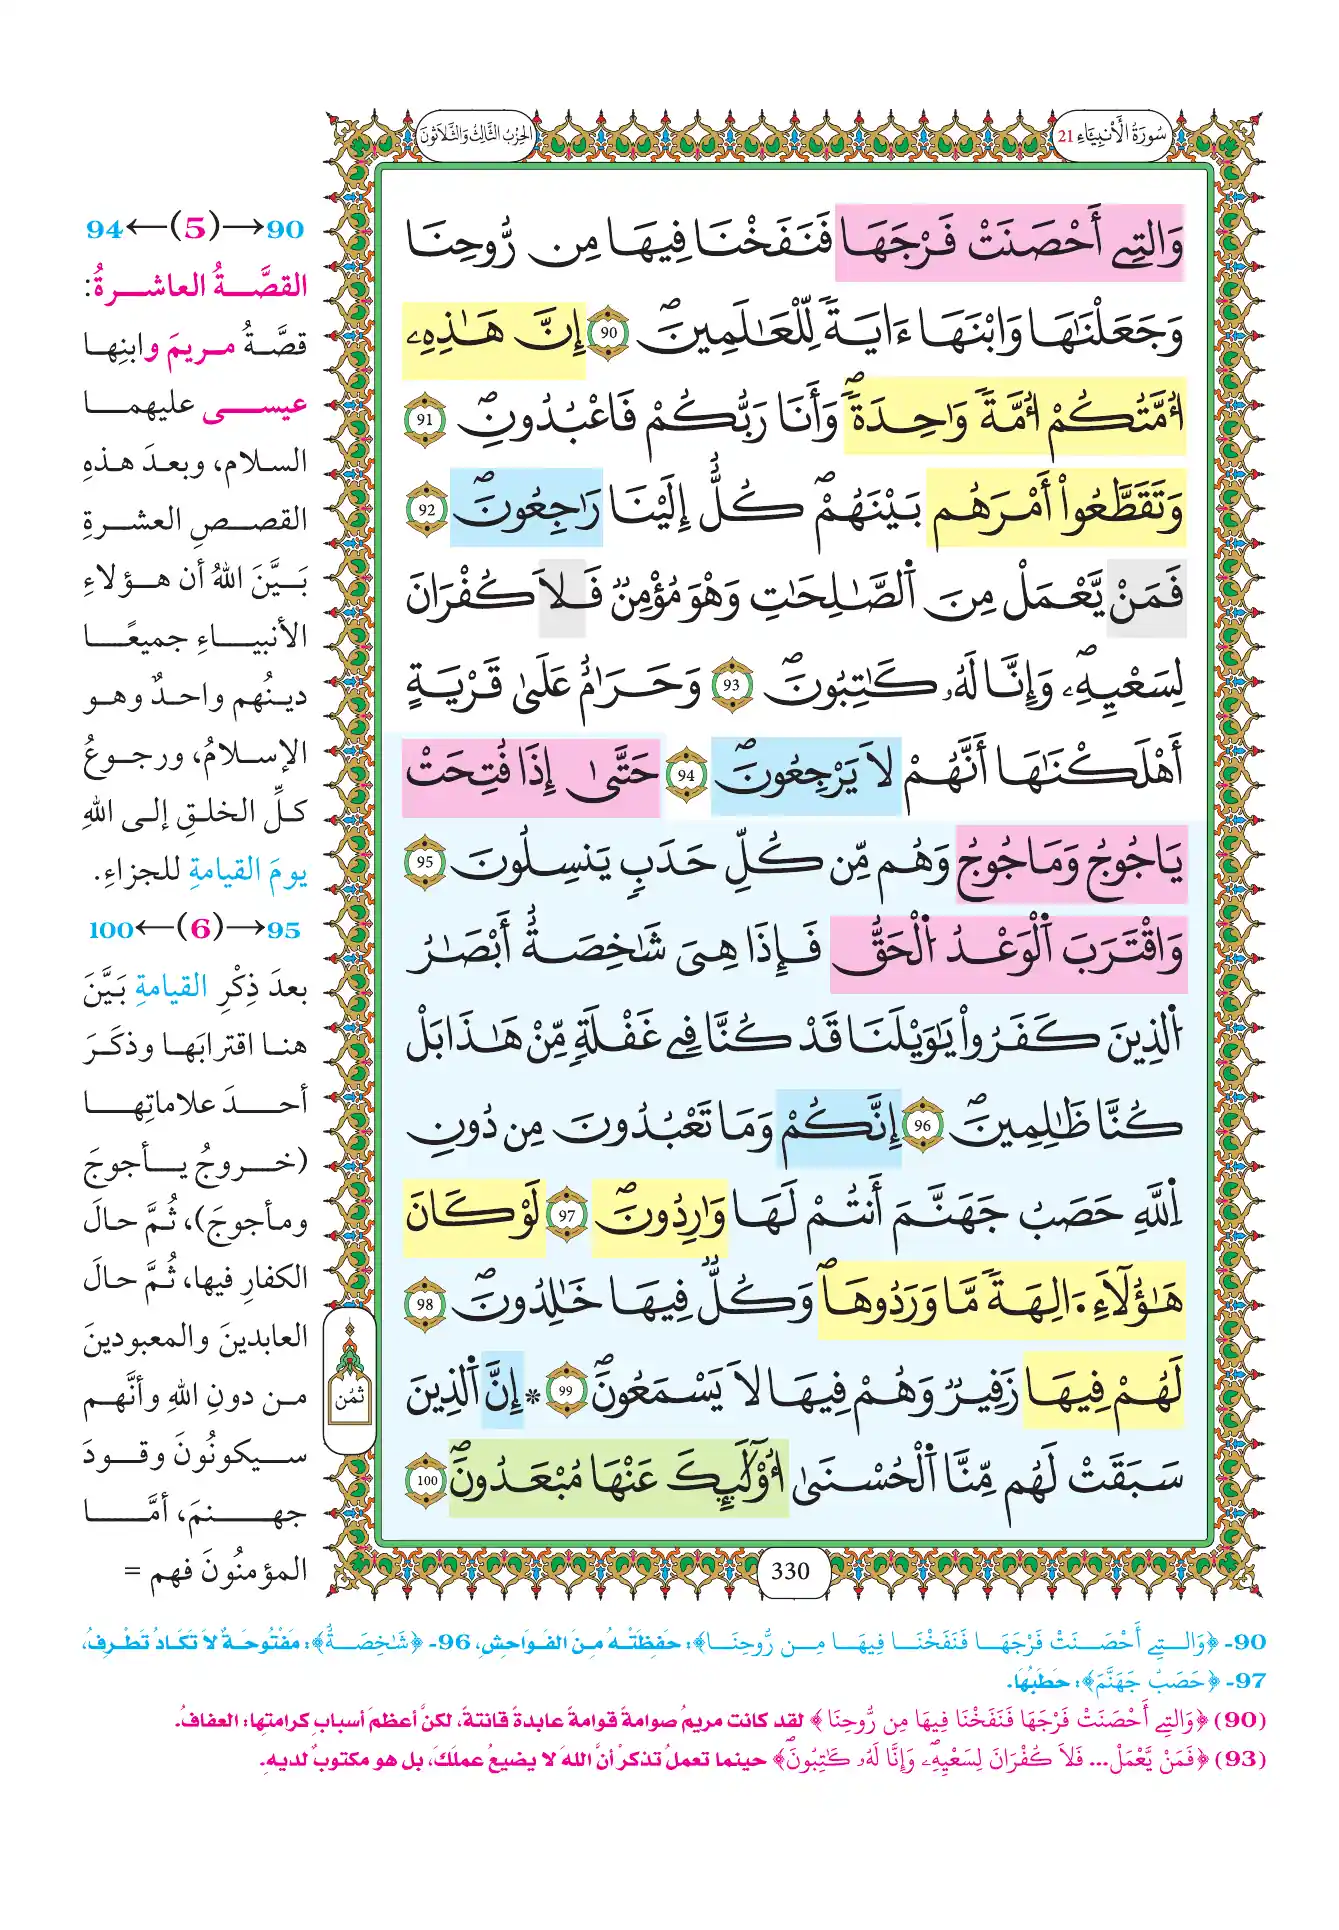 سُورَةُ الْأَنْبِيَاءِ 21
الحِزْبُ الثَّالِثُ وَالثَّلَاثُونَ
وَالتِے أَحْصَنَتْ فَرْجَهَا فَنَفَخْنَا فِيهَا مِن رُّوحِنَا
وَجَعَلْنَٰهَا وَابْنَهَا ءَايَةٗ لِّلْعَٰلَمِينَۖ 90 إِنَّ هَٰذِهِۦ
أُمَّتُكُمُۥٓ أُمَّةٗ وَٰحِدَةٗۖ وَأَنَا رَبُّكُمْ فَاعْبُدُونِۖ 91
وَتَقَطَّعُواْ أَمْرَهُم بَيْنَهُمْۖ كُلٌّ إِلَيْنَا رَٰجِعُونَۖ 92
فَمَنْ يَّعْمَلْ مِنَ اَ۬لصَّٰلِحَٰتِ وَهْوَ مُؤْمِنٞ فَلَا كُفْرَانَ
لِسَعْيِهِۦۖ وَإِنَّا لَهُۥ كَٰتِبُونَۖ 93 وَحَرَٰمٌ عَلَىٰ قَرْيَةٍ
أَهْلَكْنَٰهَا أَنَّهُمْ لَا يَرْجِعُونَۖ 94 حَتَّىٰ إِذَا فُتِحَتْ
يَاجُوجُ وَمَاجُوجُ وَهُم مِّن كُلِّ حَدَبٖ يَنسِلُونَ 95
وَاقْتَرَبَ اَ۬لْوَعْدُ اُ۬لْحَقُّ فَإِذَا هِيَ شَٰخِصَةٌ أَبْصَٰرُ
اُ۬لذِينَ كَفَرُواْ يَٰوَيْلَنَا قَدْ كُنَّا فِے غَفْلَةٖ مِّنْ هَٰذَا بَلْ
كُنَّا ظَٰلِمِينَۖ 96 إِنَّكُمْ وَمَا تَعْبُدُونَ مِن دُونِ
اِ۬للَّهِ حَصَبُ جَهَنَّمَ أَنتُمْ لَهَا وَٰرِدُونَۖ 97 لَوْ كَانَ
هَٰؤُلَآءِ اَ۬لِهَةٗ مَّا وَرَدُوهَاۖ وَكُلّٞ فِيهَا خَٰلِدُونَۖ 98
لَهُمْ فِيهَا زَفِيرٞ وَهُمْ فِيهَا لَا يَسْمَعُونَۖ 99 * إِنَّ اَ۬لذِينَ
سَبَقَتْ لَهُم مِّنَّا اَ۬لْحُسْنَىٰ أُوْلَٰٓئِكَ عَنْهَا مُبْعَدُونَۖ 100
ثمن
330
90→(5)←94
القصَّةُ العاشرةُ:
قصَّةُ مريمَ وابنِها
عيسى عليهما
السلام، وبعدَ هذهِ
القصصِ العشرةِ
بَيَّنَ اللهُ أن هؤلاءِ
الأنبياءِ جميعًا
دينُهم واحدٌ وهو
الإسلامُ، ورجوعُ
كلِّ الخلقِ إلى اللهِ
يومَ القيامةِ للجزاءِ.
95→(6)←100
بعدَ ذِكْرِ القيامةِ بَيَّنَ
هنا اقترابَها وذكَرَ
أحدَ علاماتِها
(خروجُ يأجوجَ
ومأجوجَ)، ثُمَّ حالَ
الكفارِ فيها، ثُمَّ حالَ
العابدينَ والمعبودينَ
من دونِ اللهِ وأنَّهم
سيكونُونَ وقودَ
جهنمَ، أمَّا
المؤمنُونَ فهم =
90- ﴿وَالتِے أَحْصَنَتْ فَرْجَهَا فَنَفَخْنَا فِيهَا مِن رُّوحِنَا﴾: حَفِظَتْهُ مِنَ الفَوَاحِشِ، 96- ﴿شَٰخِصَةٌ﴾: مَفْتُوحَةٌ لاَ تَكَادُ تَطْرِفُ،
97- ﴿حَصَبُ جَهَنَّمَ﴾: حَطَبُهَا.
(90) ﴿وَالتِے أَحْصَنَتْ فَرْجَهَا فَنَفَخْنَا فِيهَا مِن رُّوحِنَا﴾ لقد كانت مريمُ صوامةً قوامةً عابدةً قانتةً، لكنَّ أعظمَ أسبابِ كرامتِها: العفافُ.
(93) ﴿فَمَنْ يَّعْمَلْ... فَلَا كُفْرَانَ لِسَعْيِهِۦۖ وَإِنَّا لَهُۥ كَٰتِبُونَۖ﴾ حينما تعملُ تذكرْ أنَّ اللهَ لا يضيعُ عملَكَ، بل هو مكتوبٌ لديهِ.